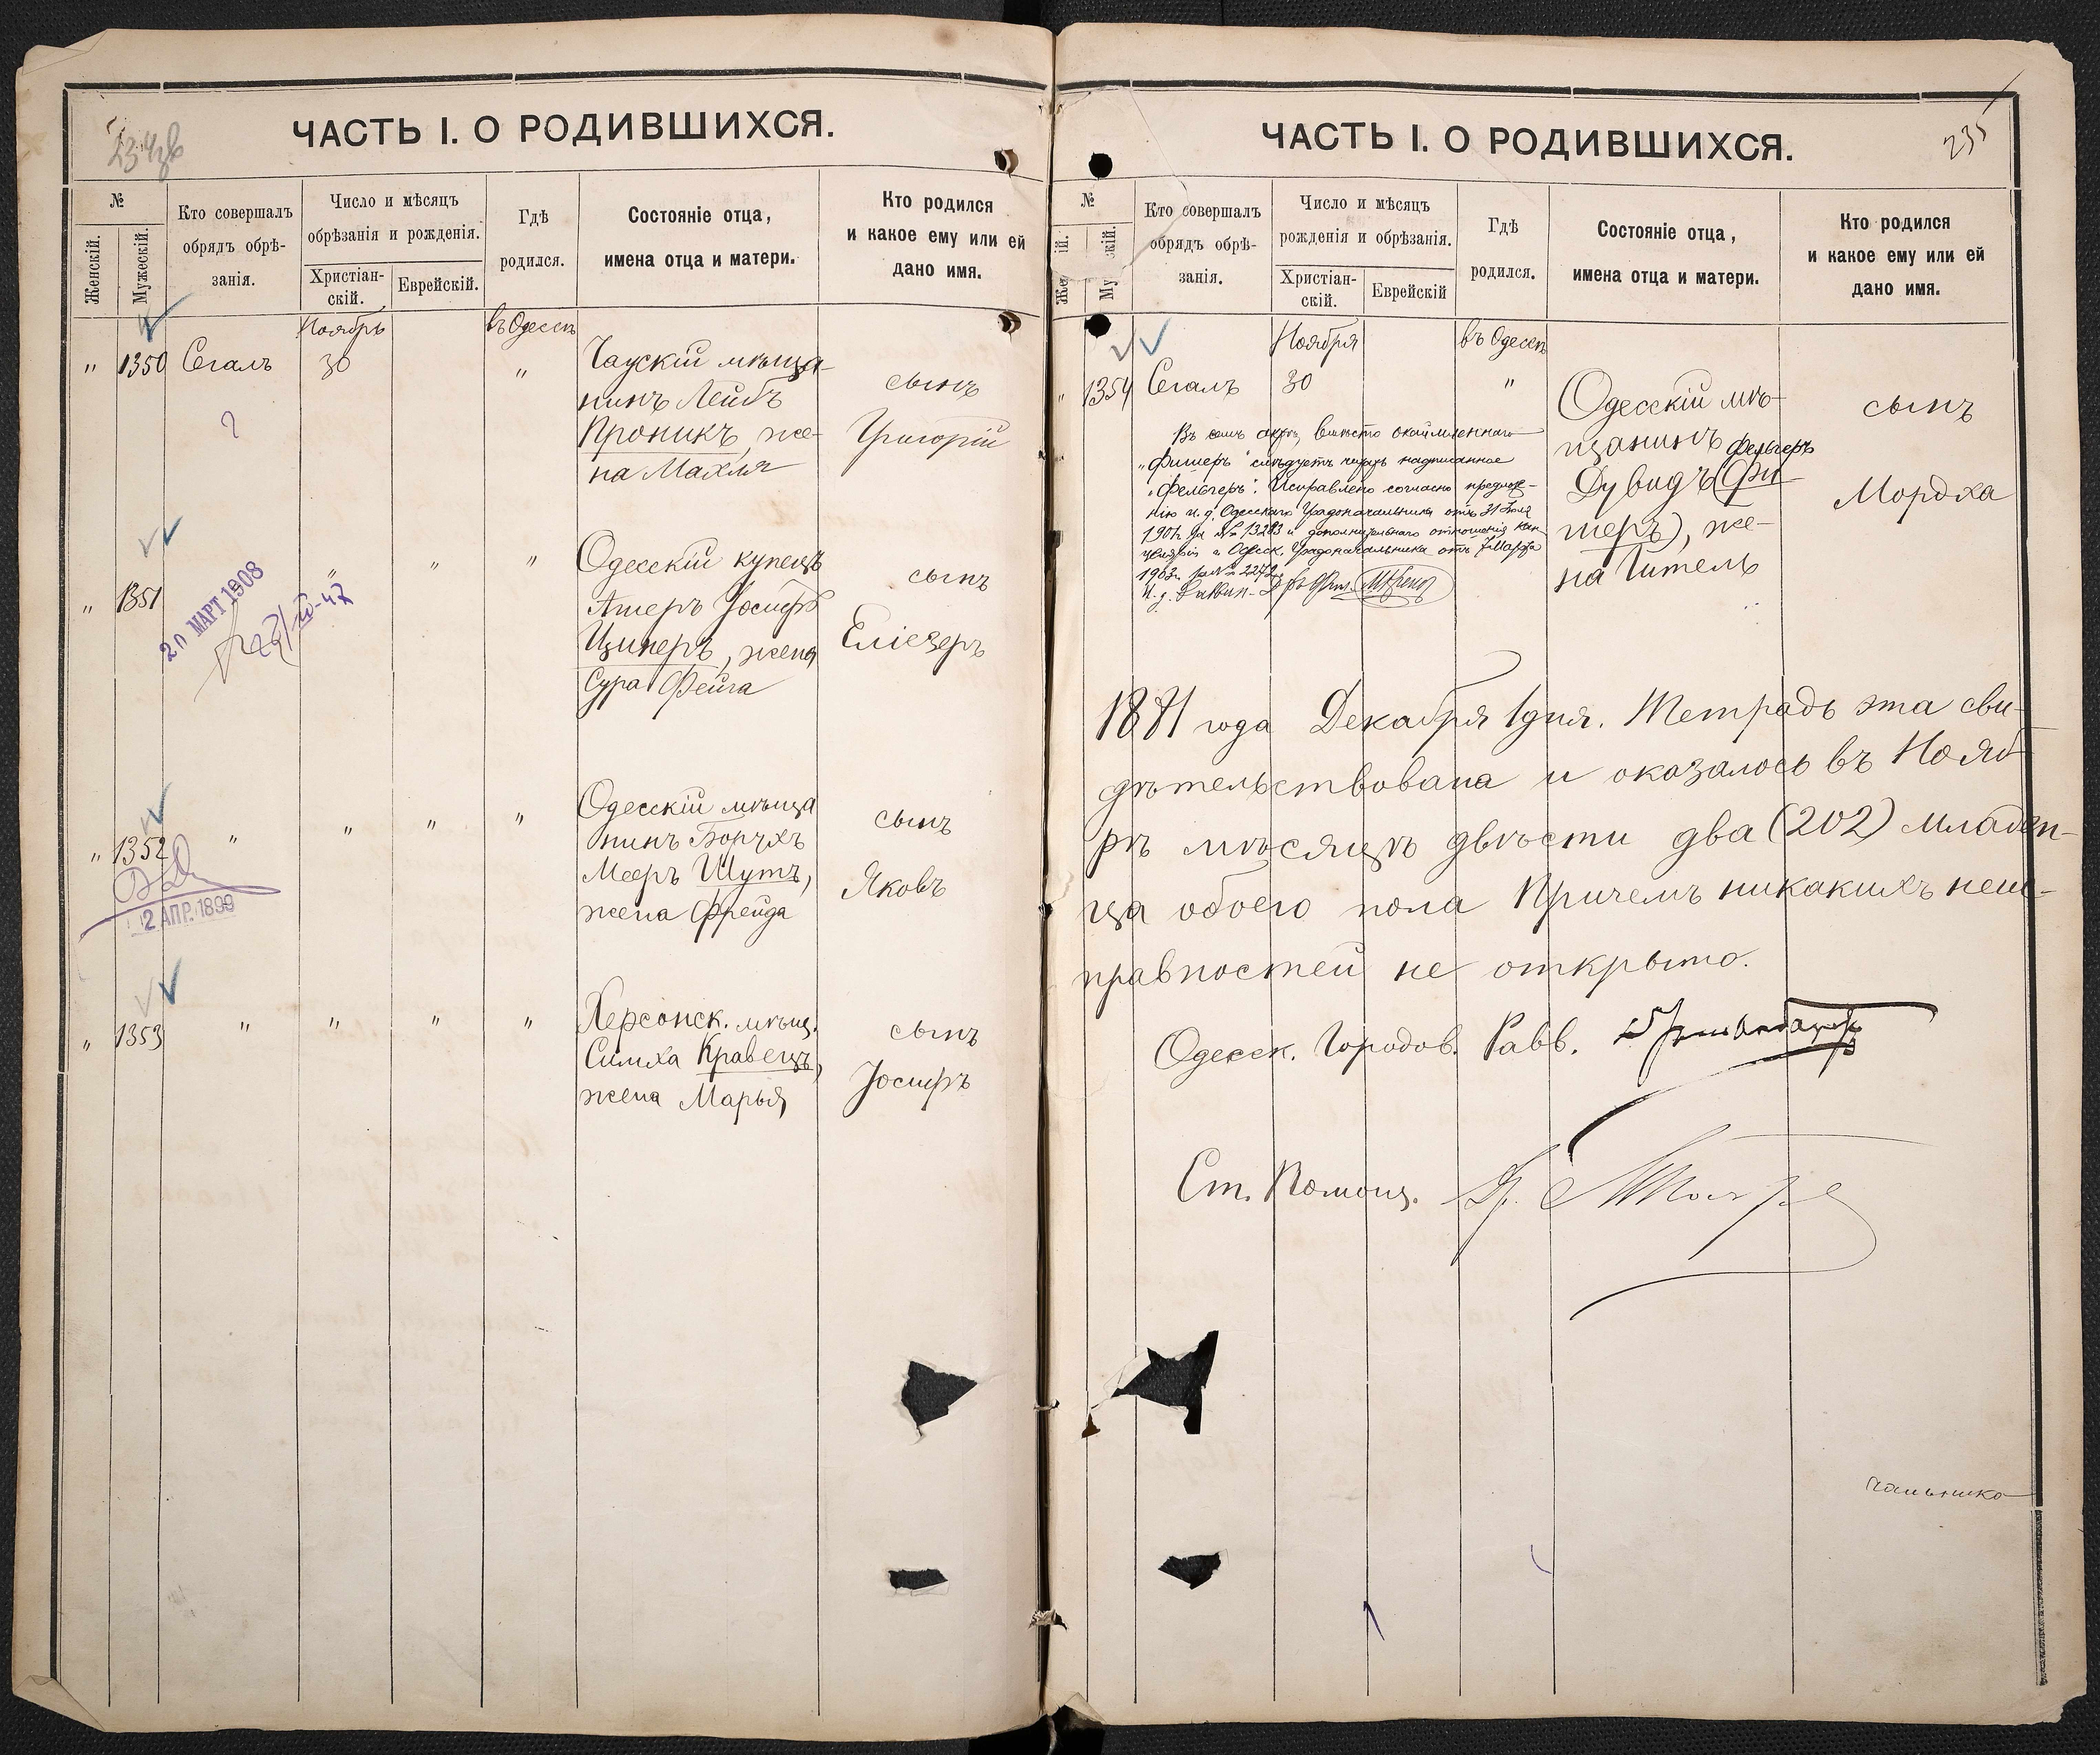 ЧАСТЬ I. О РОДИВШИХСЯ.
№
Женскій.
Мужескій.
Кто совершалъ
обрядъ обрѣ-
занія.
Число и мѣсяцъ
обрѣзанія и рожденія.
Христіан-
скій.
Еврейскій.
Гдѣ
родился.
Состояніе отца,
имена отца и матери.
Кто родился
и какое ему или ей
дано имя.
Ноябрь
въ Одессѣ
" 1350 Сегалъ 30 "
Чаускій мѣща-
нинъ Лейбъ
Проникъ, же-
на Махля
сынъ
Григорій
" 1351 " " "
20 МАРТ 1908
Одесскій купецъ
Ашеръ Іосифъ
Циперъ, жена
Сура Фейга
сынъ
Еліезеръ
" 1352 " " " "
2 АПР. 1899
Одесскій мѣща
нинъ Борухъ
Мееръ Шутъ,
жена Фрейда
сынъ
Яковъ
" 1353 " " " "
Херсонск. мѣщ.
Симха Кравецъ,
жена Марья
сынъ
Іосифъ
ЧАСТЬ I. О РОДИВШИХСЯ.
235
№
Кто совершалъ
обрядъ обрѣ-
занія.
Число и мѣсяцъ
рожденія и обрѣзанія.
Христіан-
скій.
Еврейскій
Гдѣ
родился.
Состояніе отца,
имена отца и матери.
Кто родился
и какое ему или ей
дано имя.
Ноября
въ Одессѣ
" 1354 Сегалъ 30 "
Одесскій мѣ-
щанинъ Фельгеръ
Дувидъ (Фи
шеръ), же-
на Гитель
сынъ
Мордха
Въ семъ актѣ, вмѣсто окаймленнаго
„Фишеръ" слѣдуетъ читать надписанное
„Фельгеръ". Исправлено согласно предлож-
нію и. д. Одесскаго Градоначальника отъ 31 Іюля
1901 г. за № 13283 и дополнительнаго отношенія Кан-
целяріи г. Одесск. Градоначальника отъ 7 Марта
1903 г. за № 2272
1881 года Декабря 1 дня. Тетрадь эта сви-
дѣтельствована и оказалось въ Нояб-
рѣ мѣсяцѣ двѣсти два (202) младен-
ца обоего пола Причемъ никакихъ неис-
правностей не открыто.
Одесск. Городов. Равв.
Ст. Помощ.
чальника